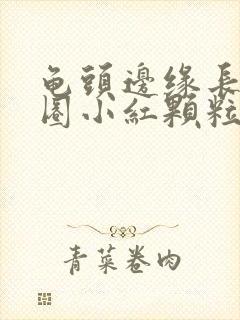 龟頭邊缘長
圈小紅顆粒
青菜卷肉